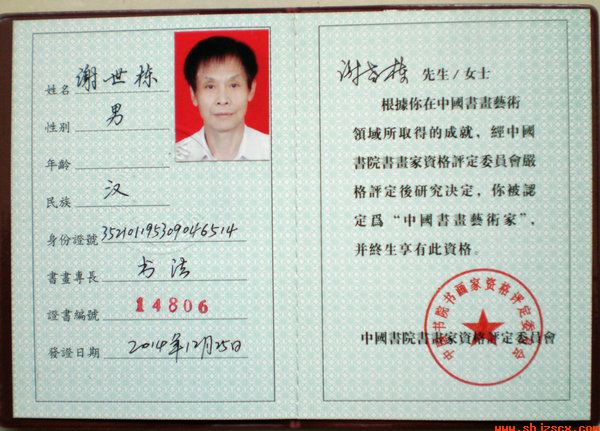 姓名 谢世栋
性别 男
年齡
民族 汉
身份證號 352101195309046514
書畫專長 书法
證書編號 14806
發證日期 2014年12月25日
谢世栋 先生/女士
根據你在中國書畫藝術
領域所取得的成就，經中國
書院書畫家資格評定委員會嚴
格評定後研究決定，你被認
定爲“中國書畫藝術家”，
并終生享有此資格。
中國書院書畫家資格評定委員會
中国书院书画家资格评定委员会
www.shjzscx.com